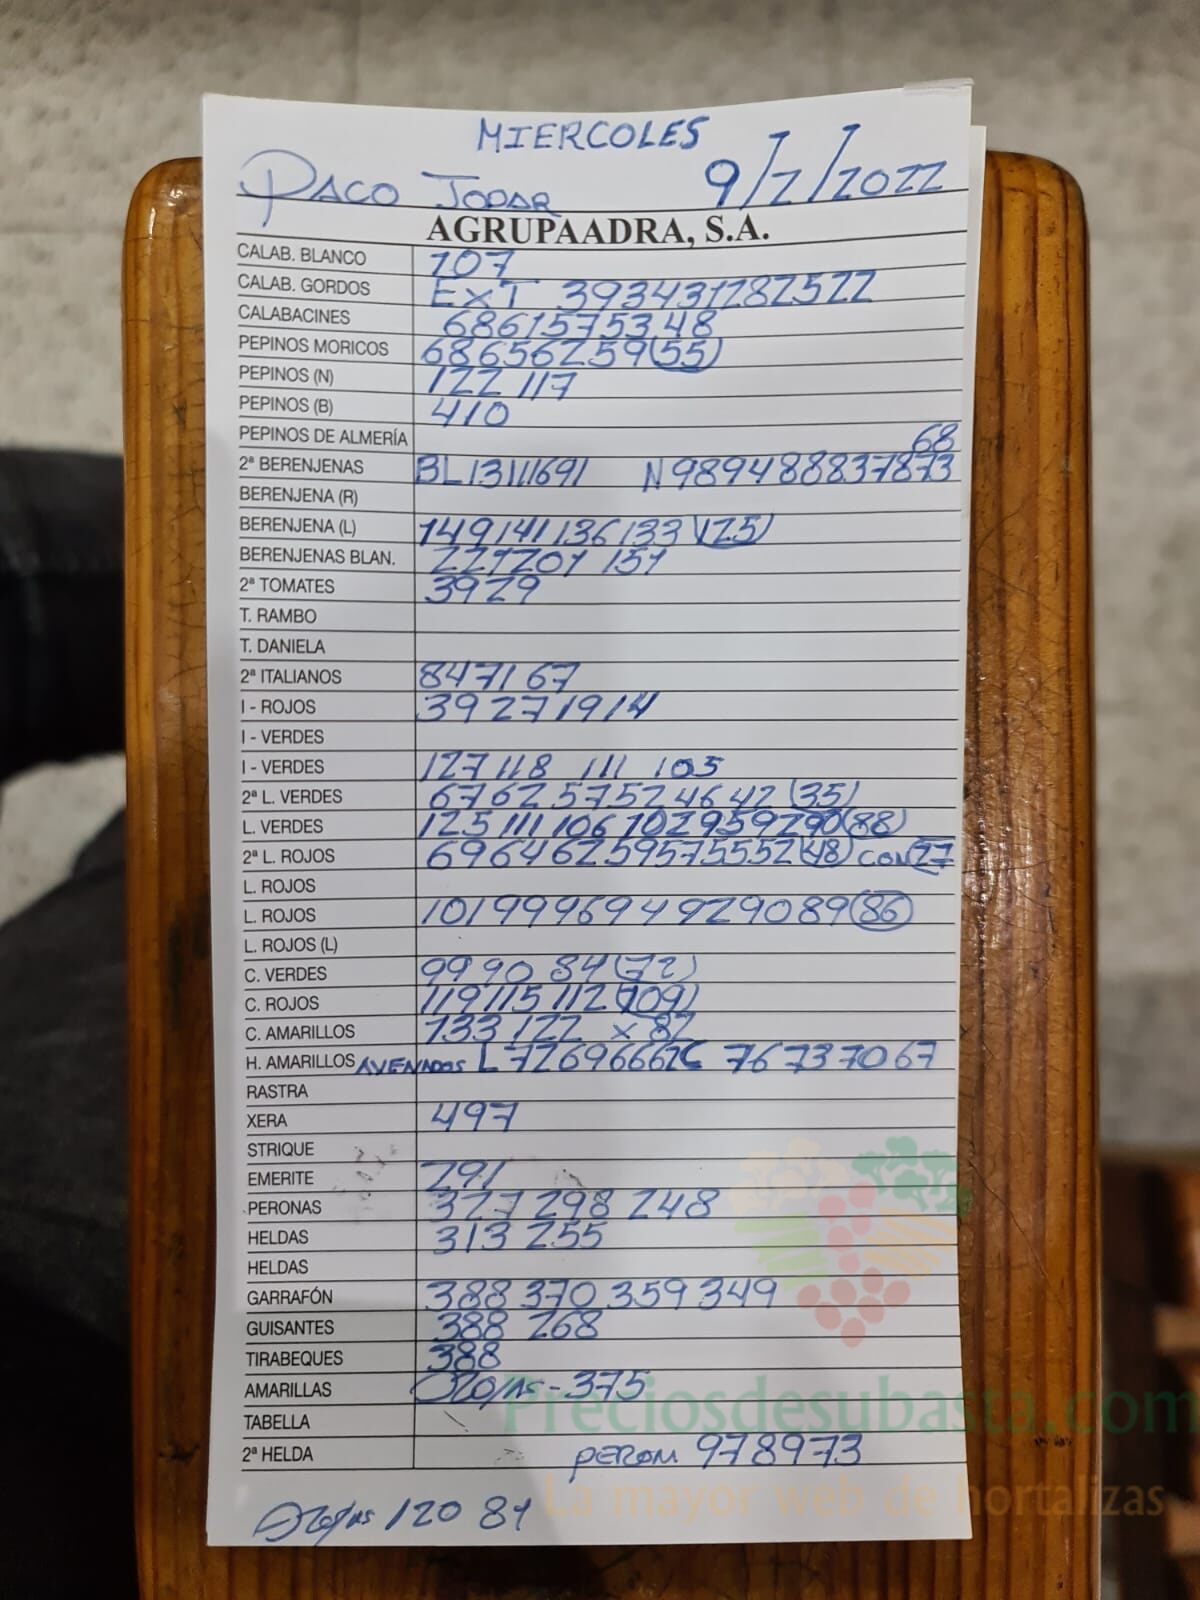 MIERCOLES
PACO JODAR 9/2/2022
AGRUPAADRA, S.A.
CALAB. BLANCO 107
CALAB. GORDOS EXT 39 34 31 28 25 22
CALABACINES 68 61 57 53 48
PEPINOS MORICOS 68 65 62 59 (55)
PEPINOS (N) 122 117
PEPINOS (B) 410
PEPINOS DE ALMERÍA 68
2ª BERENJENAS BL 131 116 91 N 98 94 88 83 78 73
BERENJENA (R)
BERENJENA (L) 149 141 136 133 (125)
BERENJENAS BLAN. 221 201 151
2ª TOMATES 39 29
T. RAMBO
T. DANIELA
2ª ITALIANOS 84 71 67
I - ROJOS 39 27 19 14
I - VERDES
I - VERDES 127 118 111 105
2ª L. VERDES 67 62 57 52 46 42 (35)
L. VERDES 125 111 106 102 95 92 90 (88)
2ª L. ROJOS 69 64 62 59 57 55 52 (48) CON (27)
L. ROJOS
L. ROJOS 101 99 96 94 92 90 89 (86)
L. ROJOS (L)
C. VERDES 99 90 84 (72)
C. ROJOS 119 115 112 (109)
C. AMARILLOS 133 122 x 82
H. AMARILLOS AVENADOS L 72 69 66 62 C 76 73 70 67
RASTRA
XERA 497
STRIQUE
EMERITE 291
PERONAS 327 298 248
HELDAS 313 255
HELDAS
GARRAFÓN 388 370 359 349
GUISANTES 388 268
TIRABEQUES 388
AMARILLAS - 375
TABELLA
2ª HELDA PERONA 97 89 73
120 81
Preciosdesubasta.com
La mayor web de hortalizas